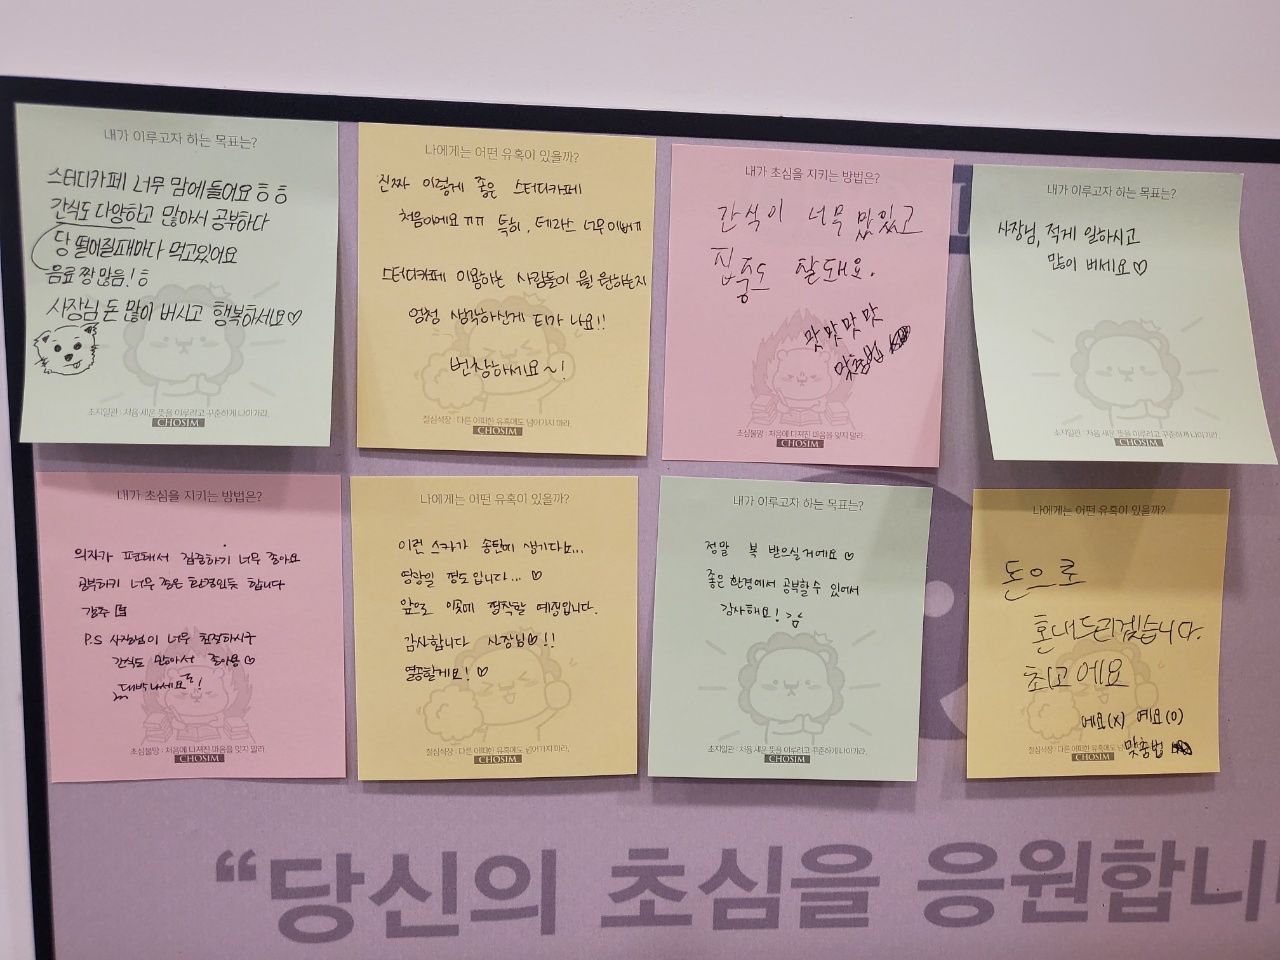 내가 이루고자 하는 목표는?
스터디카페 너무 맘에들어요ㅎㅎ
간식도 다양하고 많아서 공부하다
당 떨어질때마다 먹고있어요
음료 짱 많음!ㅎ
사장님 돈 많이 버시고 행복하세요♡
초지일관 : 처음 세운 뜻을 이루려고 꾸준하게 나아가라.
CHOSIM
나에게는 어떤 유혹이 있을까?
진짜 이렇게 좋은 스터디카페
처음이에요ㅠㅠ 특히, 테라스 너무이뻐ㅠ
스터디카페 이용하는 사람들이 뭘 원하는지
엄청 생각하신게 티가 나요!!
번창하세요~!
철심석장 : 다른 어떠한 유혹에도 넘어가지 마라.
CHOSIM
내가 초심을 지키는 방법은?
간식이 너무 맛있고
집중도 잘돼요.
맛맛맛맛
맞춤법
초심불망 : 처음에 다져진 마음을 잊지 말라.
CHOSIM
내가 이루고자 하는 목표는?
사장님, 적게 일하시고
많이 버세요♡
초지일관 : 처음 세운 뜻을 이루려고 꾸준하게 나아가라.
CHOSIM
내가 초심을 지키는 방법은?
의자가 편해서 집중하기 너무 좋아요
공부하기 너무 좋은 환경인듯 합니다
강추
P.S 사장님이 너무 친절하시구
간식도 많아서 좋아용♡
대박나세요!
초심불망 : 처음에 다져진 마음을 잊지 말라
CHOSIM
나에게는 어떤 유혹이 있을까?
이런 스카가 송탄에 생기다뇨...
영광일 정도입니다...♡
앞으로 이곳에 정착할 예정입니다.
감사합니다 사장님♡!!
열공할게요!♡
철심석장 : 다른 어떠한 유혹에도 넘어가지 마라.
CHOSIM
내가 이루고자 하는 목표는?
정말 복 받으실거에요♡
좋은환경에서 공부할수 있어서
감사해요!
초지일관 : 처음 세운 뜻을 이루려고 꾸준하게 나아가라.
CHOSIM
나에게는 어떤 유혹이 있을까?
돈으로
혼내드리겠습니다.
최고에요
에요(X) 예요(O)
맞춤법
철심석장 : 다른 어떠한 유혹에도 넘어가지 마라.
CHOSIM
“당신의 초심을 응원합니